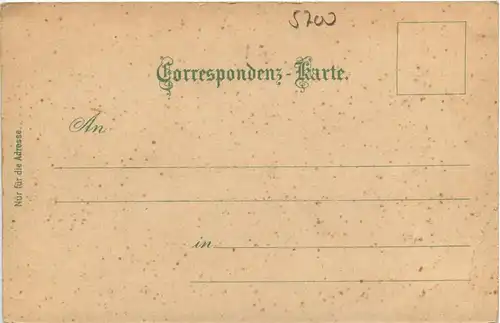 5700
Correspondenz-Karte.
An
in
Nur für die Adresse.